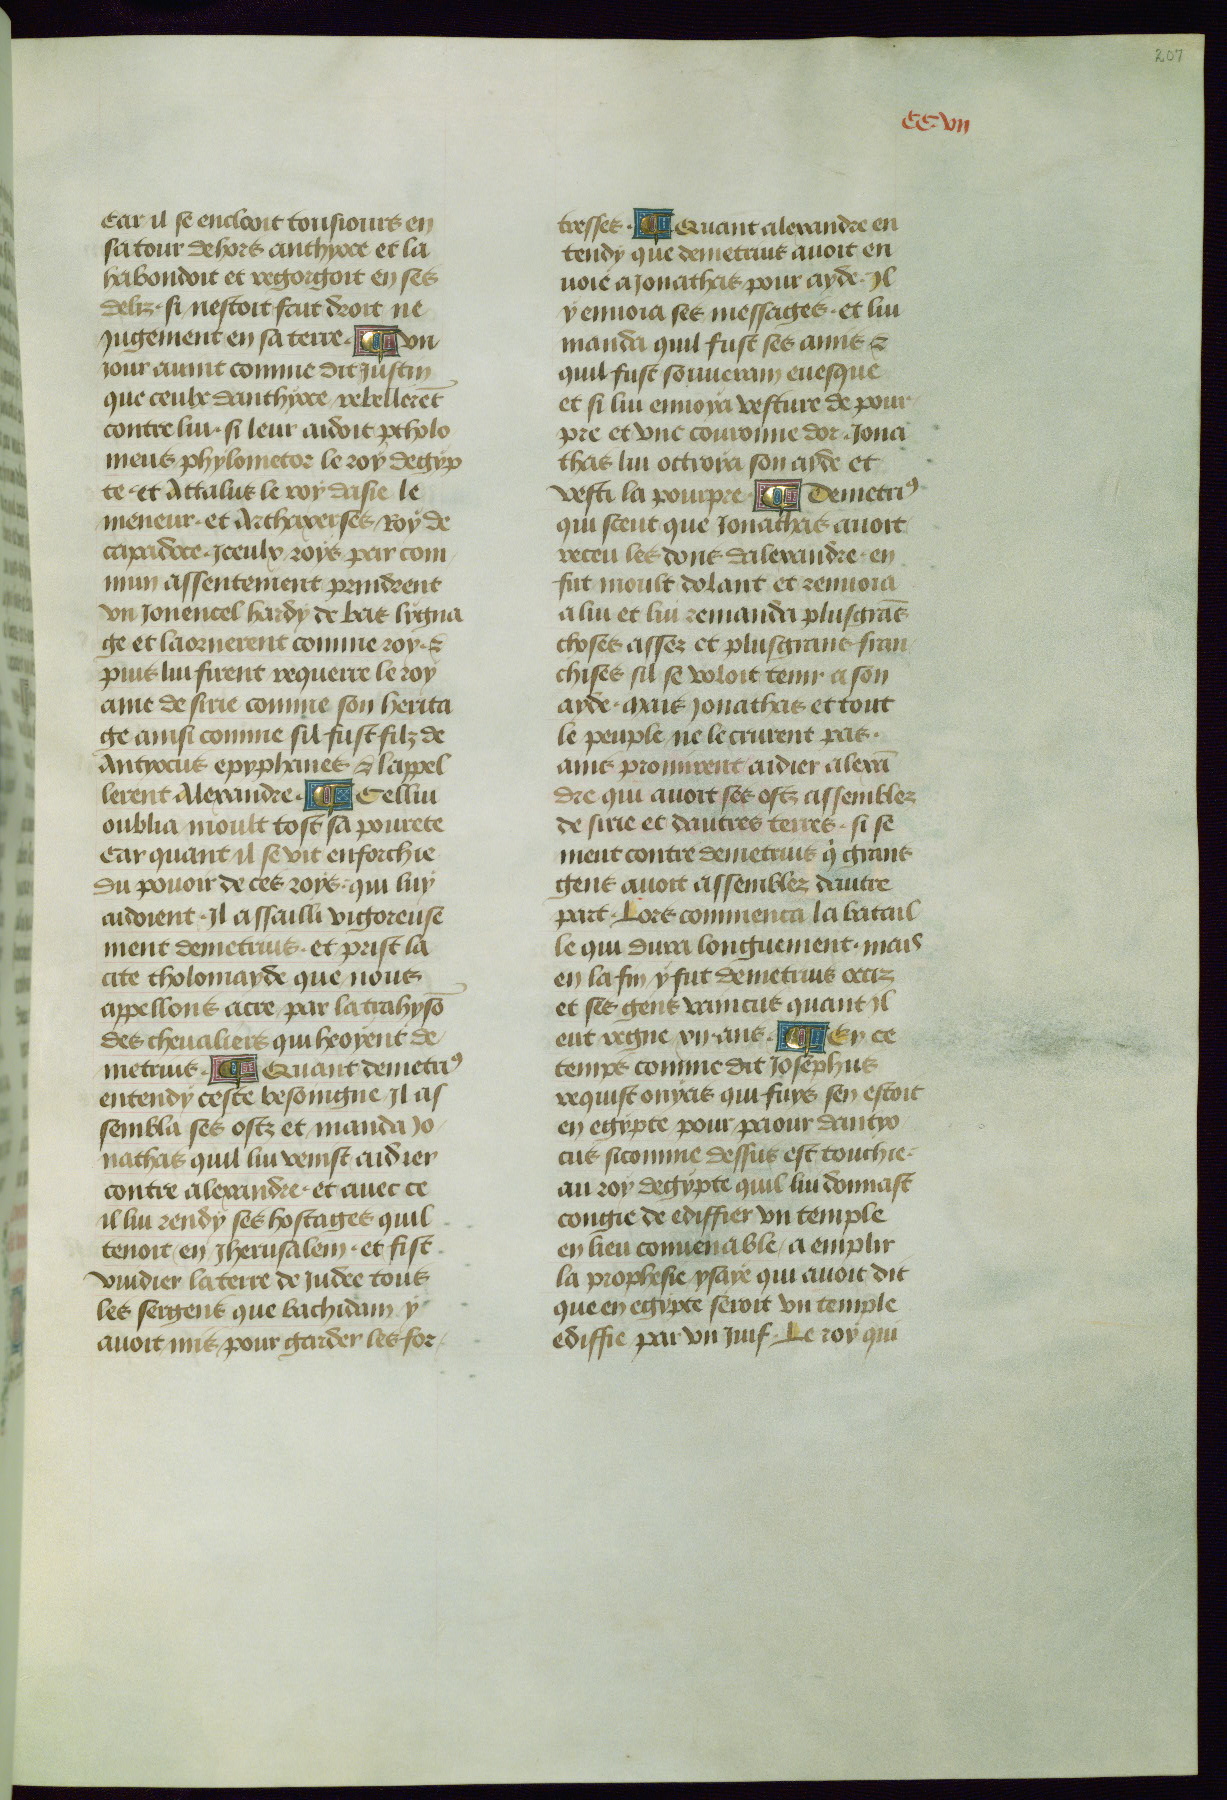 207
CC.VII
Car il se enclooit tousiours en
sa tour dehors anthyoce et la
habondoit et regorgoit en ses
deliz. si nestoit fait droit ne
iugement en sa terre. Un
iour auint comme dit Justin
que ceulx danthyoce rebelleret̄
contre lui. si leur aidoit ptholo
meus phylometor le roy degyp
te. et Attalus le roy dasie le
meneur. et Arthaxerses roy de
capadoce. Iceulx roys par com
mun assentement prindrent
vn Jouencel hardy de bas lygna
ge et laornerent comme roy. &
puis lui firent requerre le roy
ame de sirie comme son herita
ge ainsi comme sil fust filz de
Antyocus epyphanes & lappel
lerent Alexandre. Cellui
oublia moult tost sa pourete
Car quant il se vit enforchie
du pouoir de ces roys. qui luy
aidoient. Il assailli vigoreuse
ment demetrius. et prist la
cite tholomayde que nous
appellons acre par la trahysō
des cheualiers qui heoyent de
metrius. Quant demetri⁹
entendy ceste besoingne Il as
sembla ses ostz et manda Jo
nathas quil lui venist aidier
contre alexandre. et auec ce
il lui rendy ses hostages quil
tenoit en Jherusalem. et fist
vuidier la terre de Judee tous
les sergens que bachidam y
auoit mis pour garder les for
tresses. Quant alexandre en
tendy que demetrius auoit en
uoié a Jonathas pour ayde. Il
y enuoia ses messages. et lui
manda quil fust ses amis &
quil fust souuerain euesque
et si lui enuoya vesture de pour
pre et vne couronne dor. Jona
thas lui ottroya son ayde et
vesti la pourpre. Demetri⁹
qui sceut que Jonathas auoit
receu les dons dalexandre. en
fut moult dolant et renuoia
a lui et lui remanda plusgrās
choses assez et plusgrans fran
chises sil se voloit tenir a son
ayde. Mais Jonathas et tout
le peuple ne le crurent pas.
ains promirent aidier alexā
dre qui auoit ses ostz assemblez
de sirie et dautres terres. si se
ment contre demetrius q̇ grans
gens auoit assemblez dautre
part. Lors commenca la batail
le qui dura longuement. mais
en la fin y fut demetrius occiz
et ses gens vaincus quant Il
eut regne vn. ans. En ce
temps comme dit Josephus
requist onyas qui fuys sen estoit
en egypte pour paour dantyo
cus sicomme dessus est touchie.
au roy degypte quil lui donnast
congie de ediffier vn temple
en lieu conuenable / a emplir
la prophesie ysaye qui auoit dit
que en egypte seroit vn temple
ediffie par vn Juif. Le roy qui